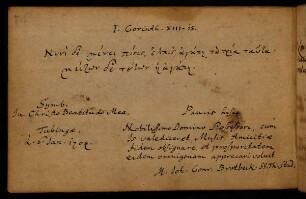 I. Corinth. XIII. 13.
Νυνὶ δὲ μένει πίστις, ἐλπὶς, ἀγάπη, τὰ τρία ταῦτα
μείζων δὲ τούτων ἡ ἀγάπη.
Symb.
In Christo Beatitudo Mea.
Tubingæ
d. 2. Jan. 1702
Nobilissimo Domino Possessori, cum
valediceret
fidem obsignare, et prosperitatem
eidem omnigenam apprecari voluit
M. Joh. Conr. Brotbeck